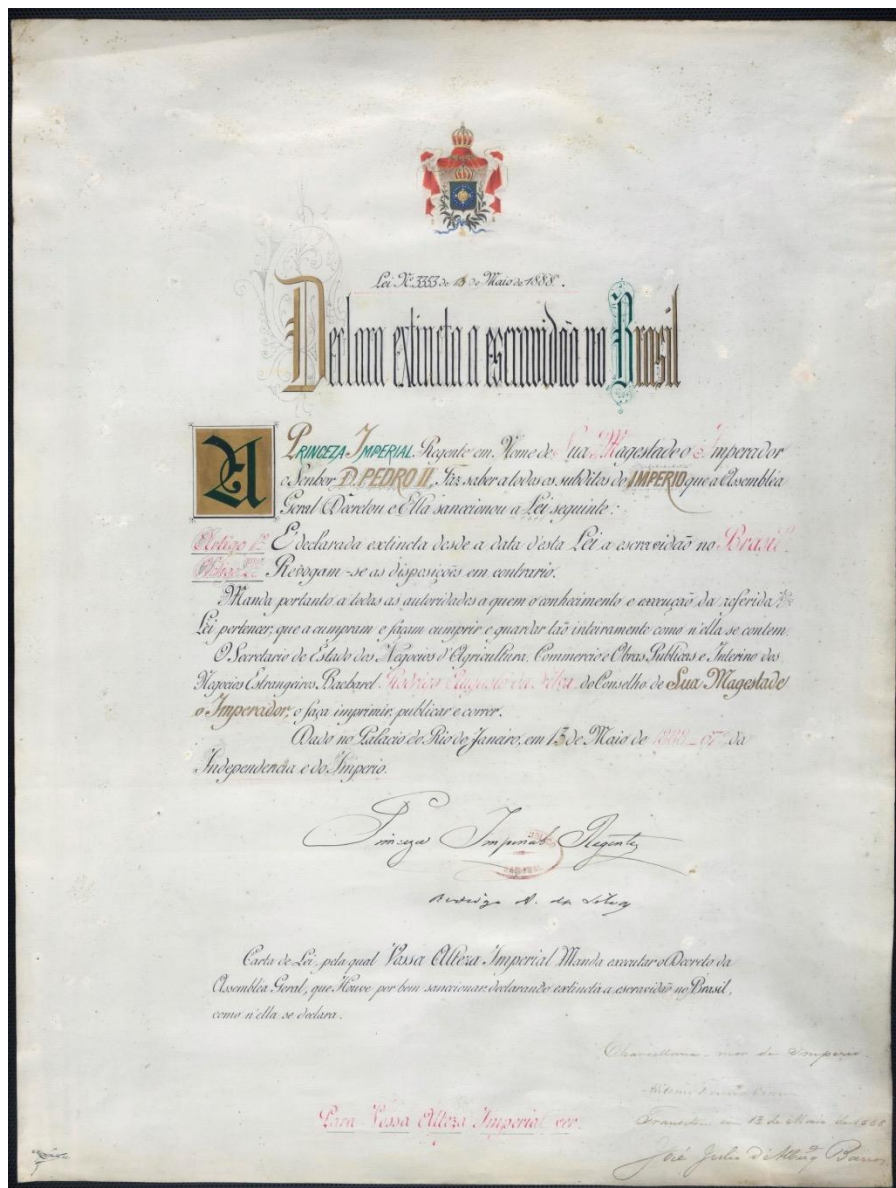 Lei Nº 3353 de 13 de Maio de 1888.
Declara extincta a escravidão no Brasil
A PRINCEZA IMPERIAL Regente em Nome de Sua Magestade o Imperador
o Senhor D. PEDRO II, Faz saber a todos os subditos do IMPERIO que a Assembléa
Geral Decretou e Ella sanccionou a Lei seguinte:
Artigo 1º É declarada extincta desde a data d'esta Lei a escravidão no Brasil.
Artigo 2º Revogam-se as disposições em contrario.
Manda portanto a todas as autoridades a quem o conhecimento e execução da referida
Lei pertencer, que a cumpram e façam cumprir e guardar tão inteiramente como n'ella se contem.
O Secretario de Estado dos Negocios d'Agricultura, Commercio e Obras Publicas e Interino dos
Negocios Estrangeiros Bacharel Rodrigo Augusto da Silva, do Conselho de Sua Magestade
o Imperador, o faça imprimir, publicar e correr.
Dado no Palacio do Rio de Janeiro, em 13 de Maio de 1888 - 67º da
Independencia e do Imperio.
Princeza Imperial Regente
Rodrigo A. da Silva
Carta de Lei, pela qual Vossa Alteza Imperial Manda executar o Decreto da
Assembléa Geral, que Houve por bem sanccionar, declarando extincta a escravidão no Brasil,
como n'ella se declara.
Chancellaria-mor do Imperio.
Para Vossa Alteza Imperial ver.
Transitou em 13 de Maio de 1888
José Julio d'Albuqº Barros